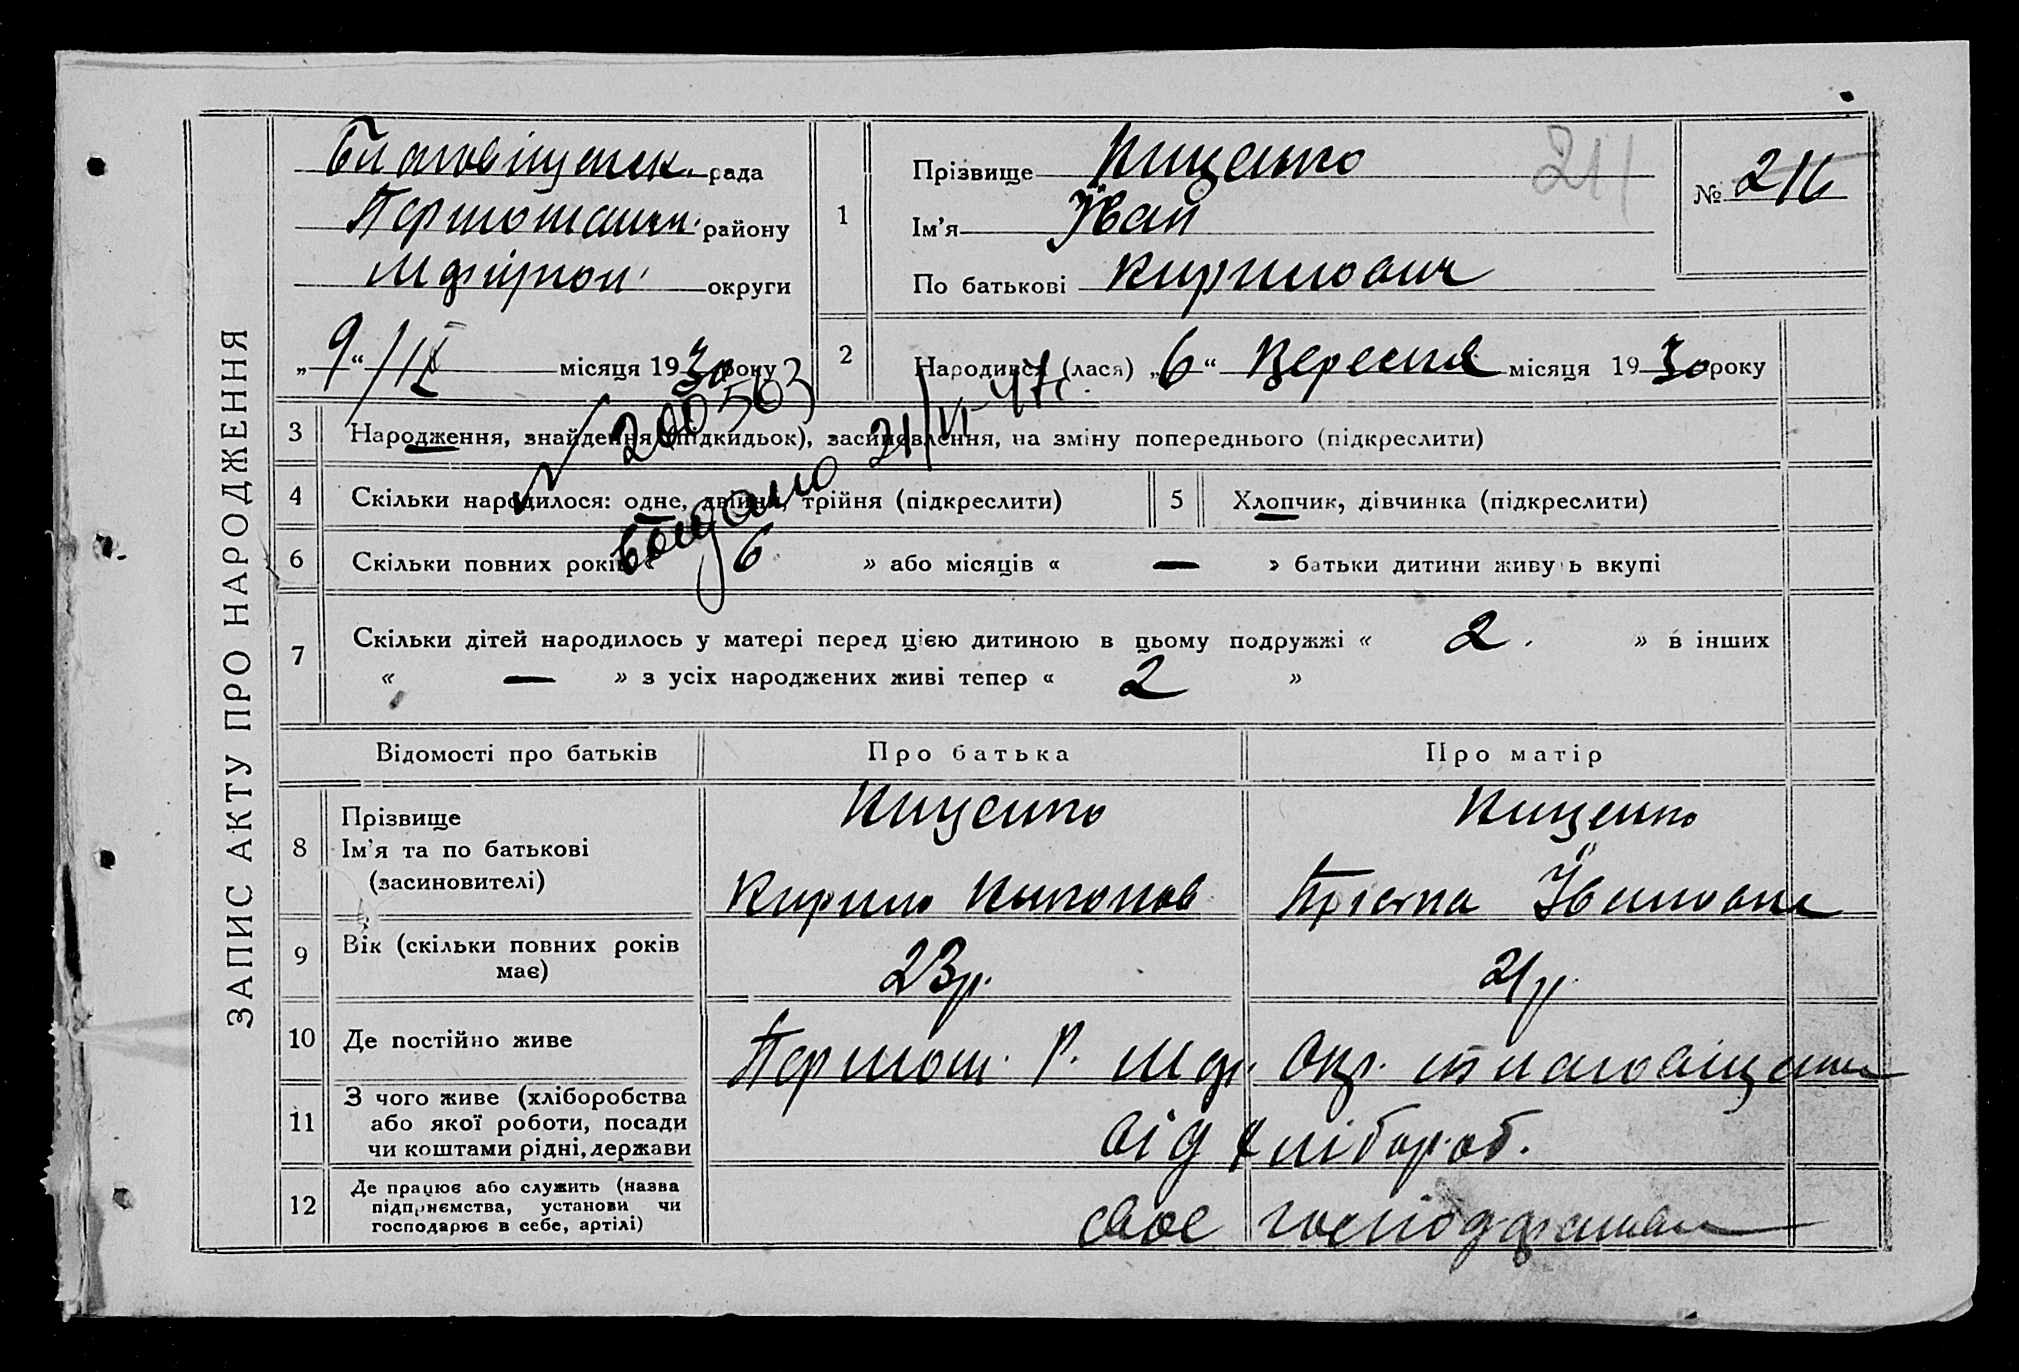 ЗАПИС АКТУ ПРО НАРОДЖЕННЯ
рада
району
округи
„9“ /IX місяця 1930 року
1
Прізвище Кищенко
Ім'я Йван
По батькові Кирилович
211
№ 216
2
Народився (лася) „6“ Вересня місяця 1930 року
№ 200503
21/VI-47г.
3 Народження, знайдення (підкидьок), засиновлення, на зміну попереднього (підкреслити)
4 Скільки народилося: одне, двійня, трійня (підкреслити)
5 Хлопчик, дівчинка (підкреслити)
6 Скільки повних років « 6 » або місяців « — » батьки дитини живуть вкупі
7 Скільки дітей народилось у матері перед цією дитиною в цьому подружжі « 2. » в інших
« — » з усіх народжених живі тепер « 2 »
Відомості про батьків
Про батька
Про матір
8 Прізвище
Ім'я та по батькові
(засиновителі)
Кищенко
Кирило
Кищенко
9 Вік (скільки повних років
має)
23р.
21р.
10 Де постійно живе
Першот. р. Мар. Окр.
11 З чого живе (хліборобства
або якої роботи, посади
чи коштами рідні, держави
від хлібороб.
12 Де працює або служить (назва
підприємства, установи чи
господарює в себе, артілі)
своє